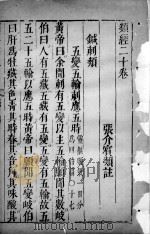 類經二十卷
張介賓類註
鍼刺類
五變五輸刺應五時
黃帝曰余聞刺有五變以主五輸願聞其數岐
伯曰人有五藏五藏有五變五變有五輸故五
五二十五輸以應五時黃帝曰願聞五變岐伯
曰肝為牡藏其色青其時春其音角其味酸其